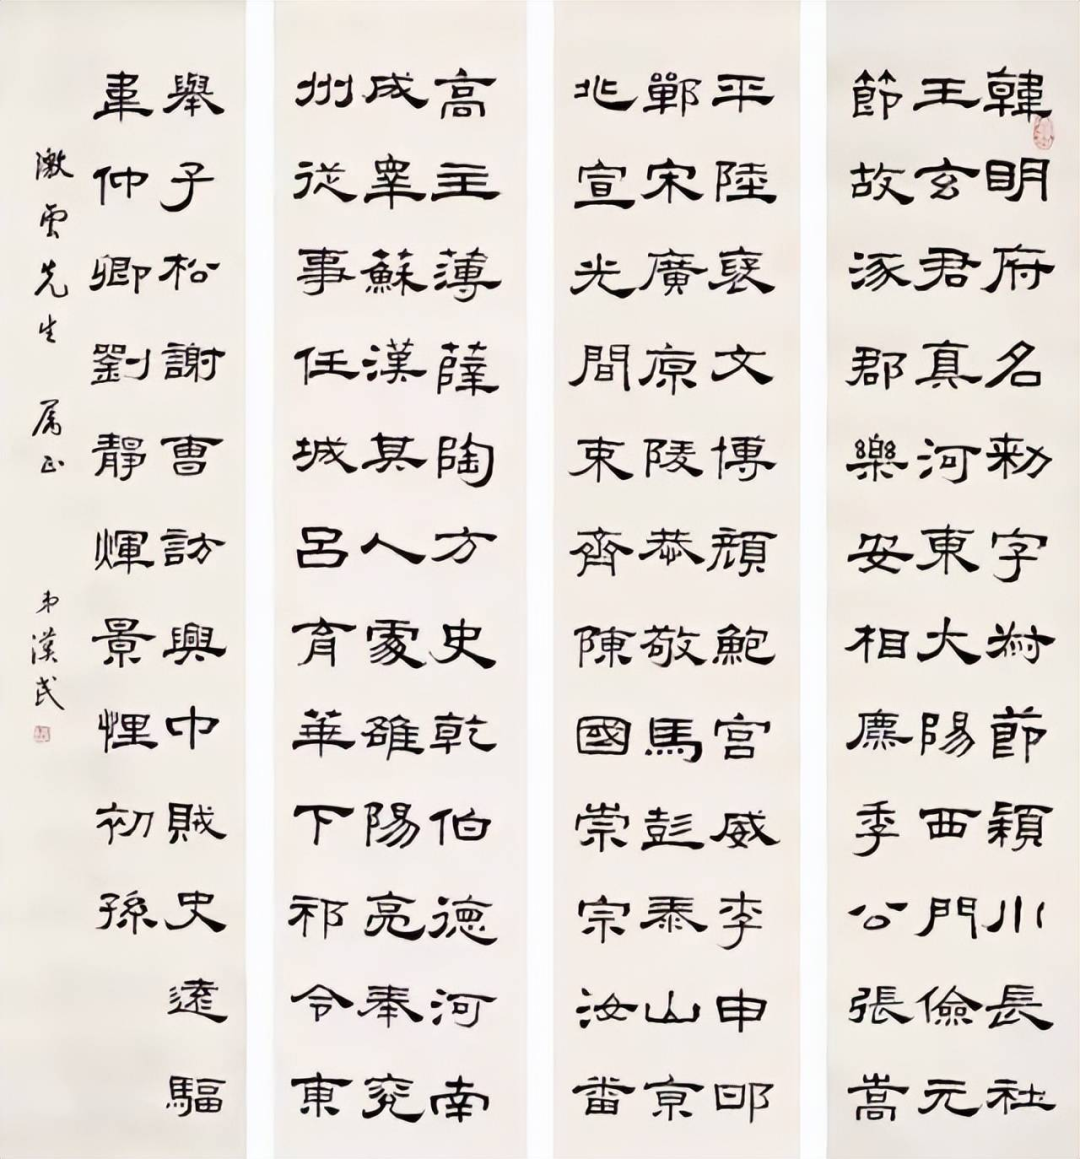 韓明府名勑字叔節潁川長社
王玄君真河東大陽西門儉元
節故涿郡樂安相麃季公張嵩
平陸裦文博顏鮑宮威李申
鄲宋廣原陵恭敬馬彭泰山京
北宣光間束齊陳國崇宗汝番
高主薄薛陶方史乾伯德河南
成睾蘇漢其人處雒陽亮奉兖
州從事任城呂育華下祁令東
舉子松謝曹訪興中賊史遠驅
韋仲卿劉靜煇景悝初孫
雲先生 屬正 弟漢民